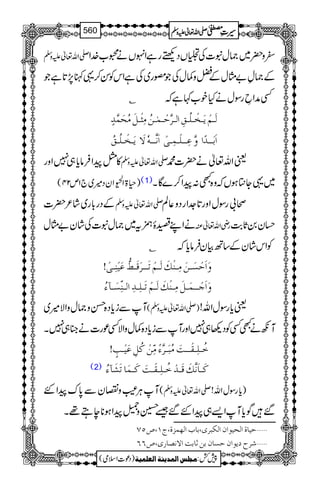 سیرتِ مصطفیٰ صلی اللہ تعالیٰ علیہ وسلم 560
سفر و حضر میں جمالِ نبوت کی تجلیاں دیکھتے رہے انہوں نے محبوبِ خدا صلی اللہ تعالیٰ علیہ وسلم
کے جمالِ بے مثال کے فضل و کمال کی جو مصوری کی ہے اس کو سن کر یہی کہنا پڑتا ہے جو
کسی مداحِ رسول نے کیا خوب کہا ہے کہ
لَمْ يَخْلُقِ الرَّحْمٰنُ مِثْلَ مُحَمَّدٍ
اَبَدًا وَّعِلْمِيْ اَنَّهٗ لَا يَخْلُقُ
یعنی اللہ تعالیٰ نے حضرت محمد صلی اللہ تعالیٰ علیہ وسلم کا مثل پیدا فرمایا ہی نہیں اور
میں یہی جانتا ہوں کہ وہ کبھی نہ پیدا کرے گا۔ (1) (حیاۃ الحیوان دمیری ج۱ ص۴۲)
صحابیِ رسول اور تاجدارِ دو عالم صلی اللہ تعالیٰ علیہ وسلم کے درباری شاعر حضرت
حسان بن ثابت رضی اللہ تعالیٰ عنہ نے اپنے قصیدۂ ہمزیہ میں جمالِ نبوت کی شان بے مثال
کو اس شان کے ساتھ بیان فرمایا کہ
وَاَحْسَنَ مِنْكَ لَمْ تَرَقَطُّ عَيْنِيْ!
وَاَجْمَلَ مِنْكَ لَمْ تَلِدِ النِّسَآءُ
یعنی یا رسول اللہ! (صلی اللہ تعالیٰ علیہ وسلم) آپ سے زیادہ حسن و جمال والا میری
آنکھ نے کبھی کسی کو دیکھا ہی نہیں اور آپ سے زیادہ کمال والا کسی عورت نے جنا ہی نہیں۔
خُلِقْتَ مُبَرَّءً مِّنْ كُلِّ عَيْبٍ!
كَاَنَّكَ قَدْ خُلِقْتَ كَمَا تَشَآءُ (2)
(یا رسول اللہ! صلی اللہ تعالیٰ علیہ وسلم) آپ ہر عیب و نقصان سے پاک پیدا کئے
گئے ہیں گویا آپ ایسے ہی پیدا کئے گئے جیسے حسین و جمیل پیدا ہونا چاہتے تھے۔
......حیاۃ الحیوان الکبری،باب الھمزۃ،ج۱،ص۷۵
......شرح دیوان حسان بن ثابت الانصاری،ص۶۶
پیش کش: مجلس المدینۃ العلمیۃ (دعوتِ اسلامی)